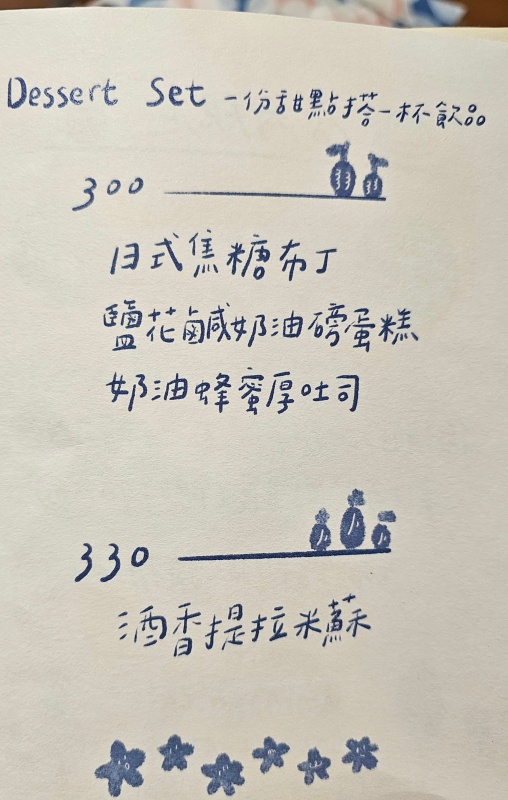 Dessert Set 一份甜點搭一杯飲品
300
日式焦糖布丁
鹽花鹹奶油磅蛋糕
奶油蜂蜜厚吐司
330
酒香提拉米蘇